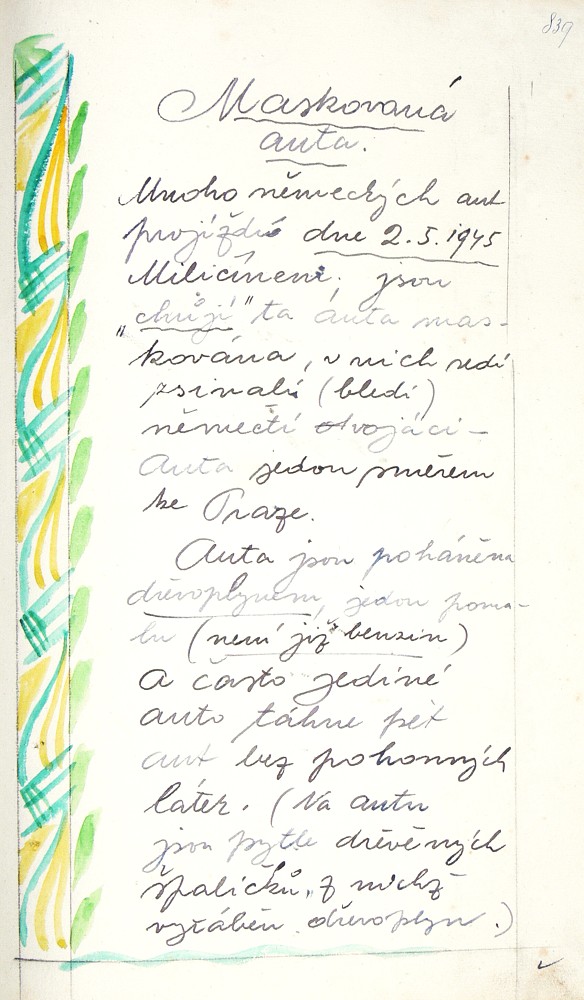 839
Maskovaná
auta.
Mnoho německých aut
projíždí dne 2. 5. 1945
Miličínem. jsou
„chůjí" ta auta mas-
kována, v nich sedí
zsinalí (bledí)
němečtí vojáci –
Auta jedou směrem
ku Praze.
Auta jsou poháněna
dřevoplynem, jedou poma-
lu (není již benzin)
A často jediné
auto táhne pět
aut bez pohonných
látek. (Na autu
jsou pytle dřevěných
špalíčků, z nichž
vyráběn dřevoplyn.)